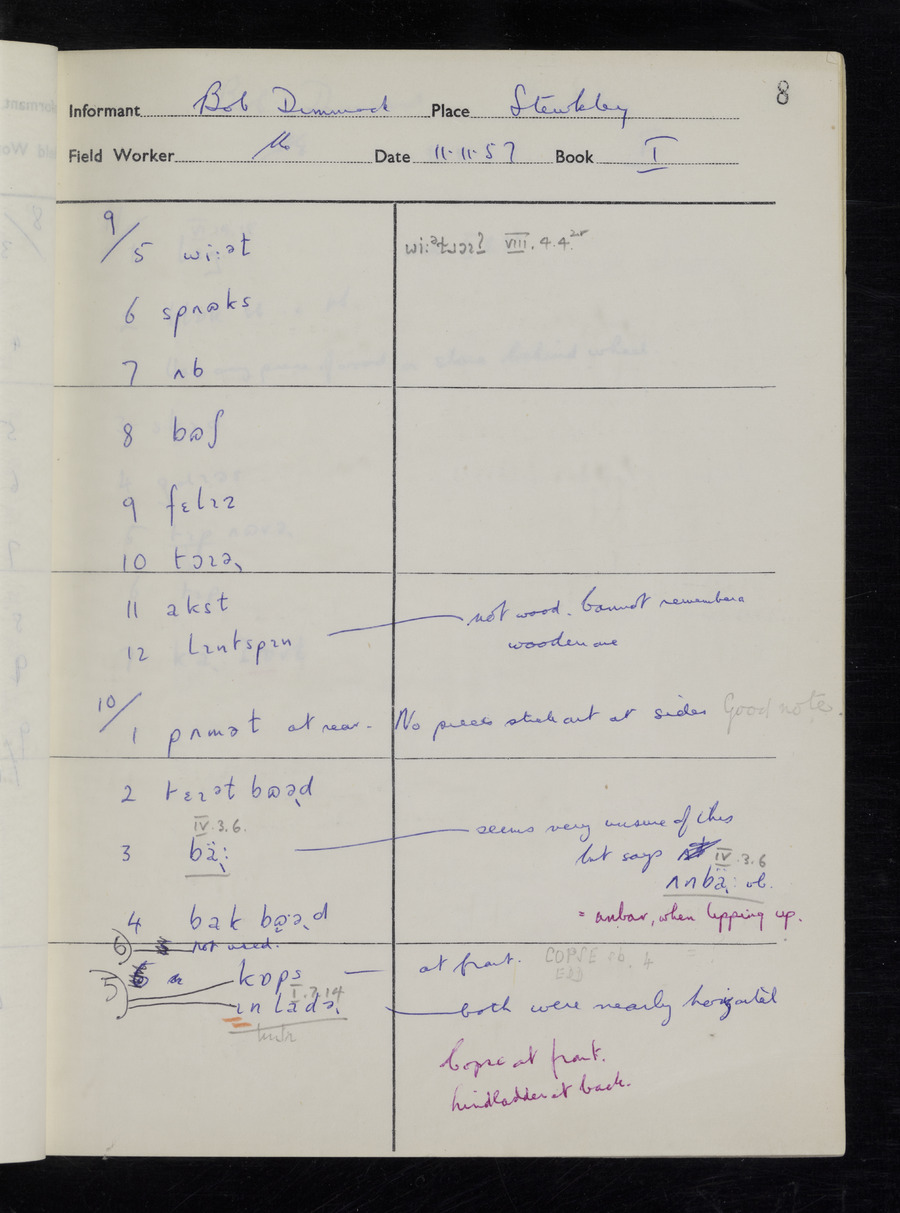 8
Informant Bob Dimmock Place Stewkley
Field Worker Date 11.11.57 Book I
9/5 wiːət wiːᵊtwɔɪ? VIII. 4.4
6 sprɷks
7 ʌb
8 bɷʃ
9 fɛlɪz
10 tɔɪə˞
11 akst not wood. Cannot remember a
12 lɪntspɪn wooden one
10/1 pʌmət at rear. No pieces stick out at sides Good note.
2 tɛɪət bɷə˞d
IV.3.6. seems very unsure of this
3 bä˞ː but says IV.3.6
ʌnbä˞ː vb.
4 bak bɷə˞d = unbar, when tipping up.
6) not used.
5) kɒps at front. COPSE sb. 4
EDD
I.7.14
ɪn ladə˞ both were nearly horizontal
Copse at front.
hindladder at back.